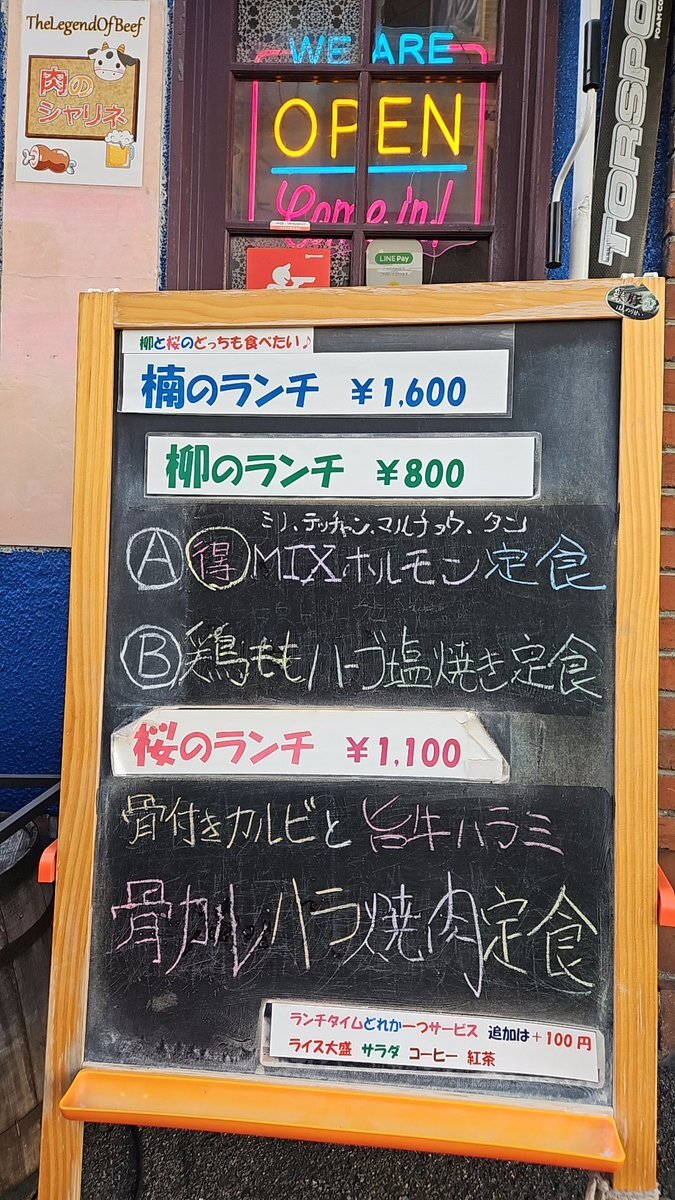 TheLegendOfBeef
肉の
シャリネ
WE ARE
OPEN
Come in!
LINE Pay
TORSPO
FOAM CO
柳と桜のどっちも食べたい♪
楠のランチ ￥1,600
柳のランチ ￥800
ミノ、テッチャン、マルチョウ、タン
Ⓐ ㊝ MIXホルモン定食
Ⓑ 鶏ももハーブ塩焼き定食
桜のランチ ￥1,100
骨付きカルビと旨牛ハラミ
骨カルハラ焼肉定食
ランチタイムどれか一つサービス 追加は＋100円
ライス大盛 サラダ コーヒー 紅茶